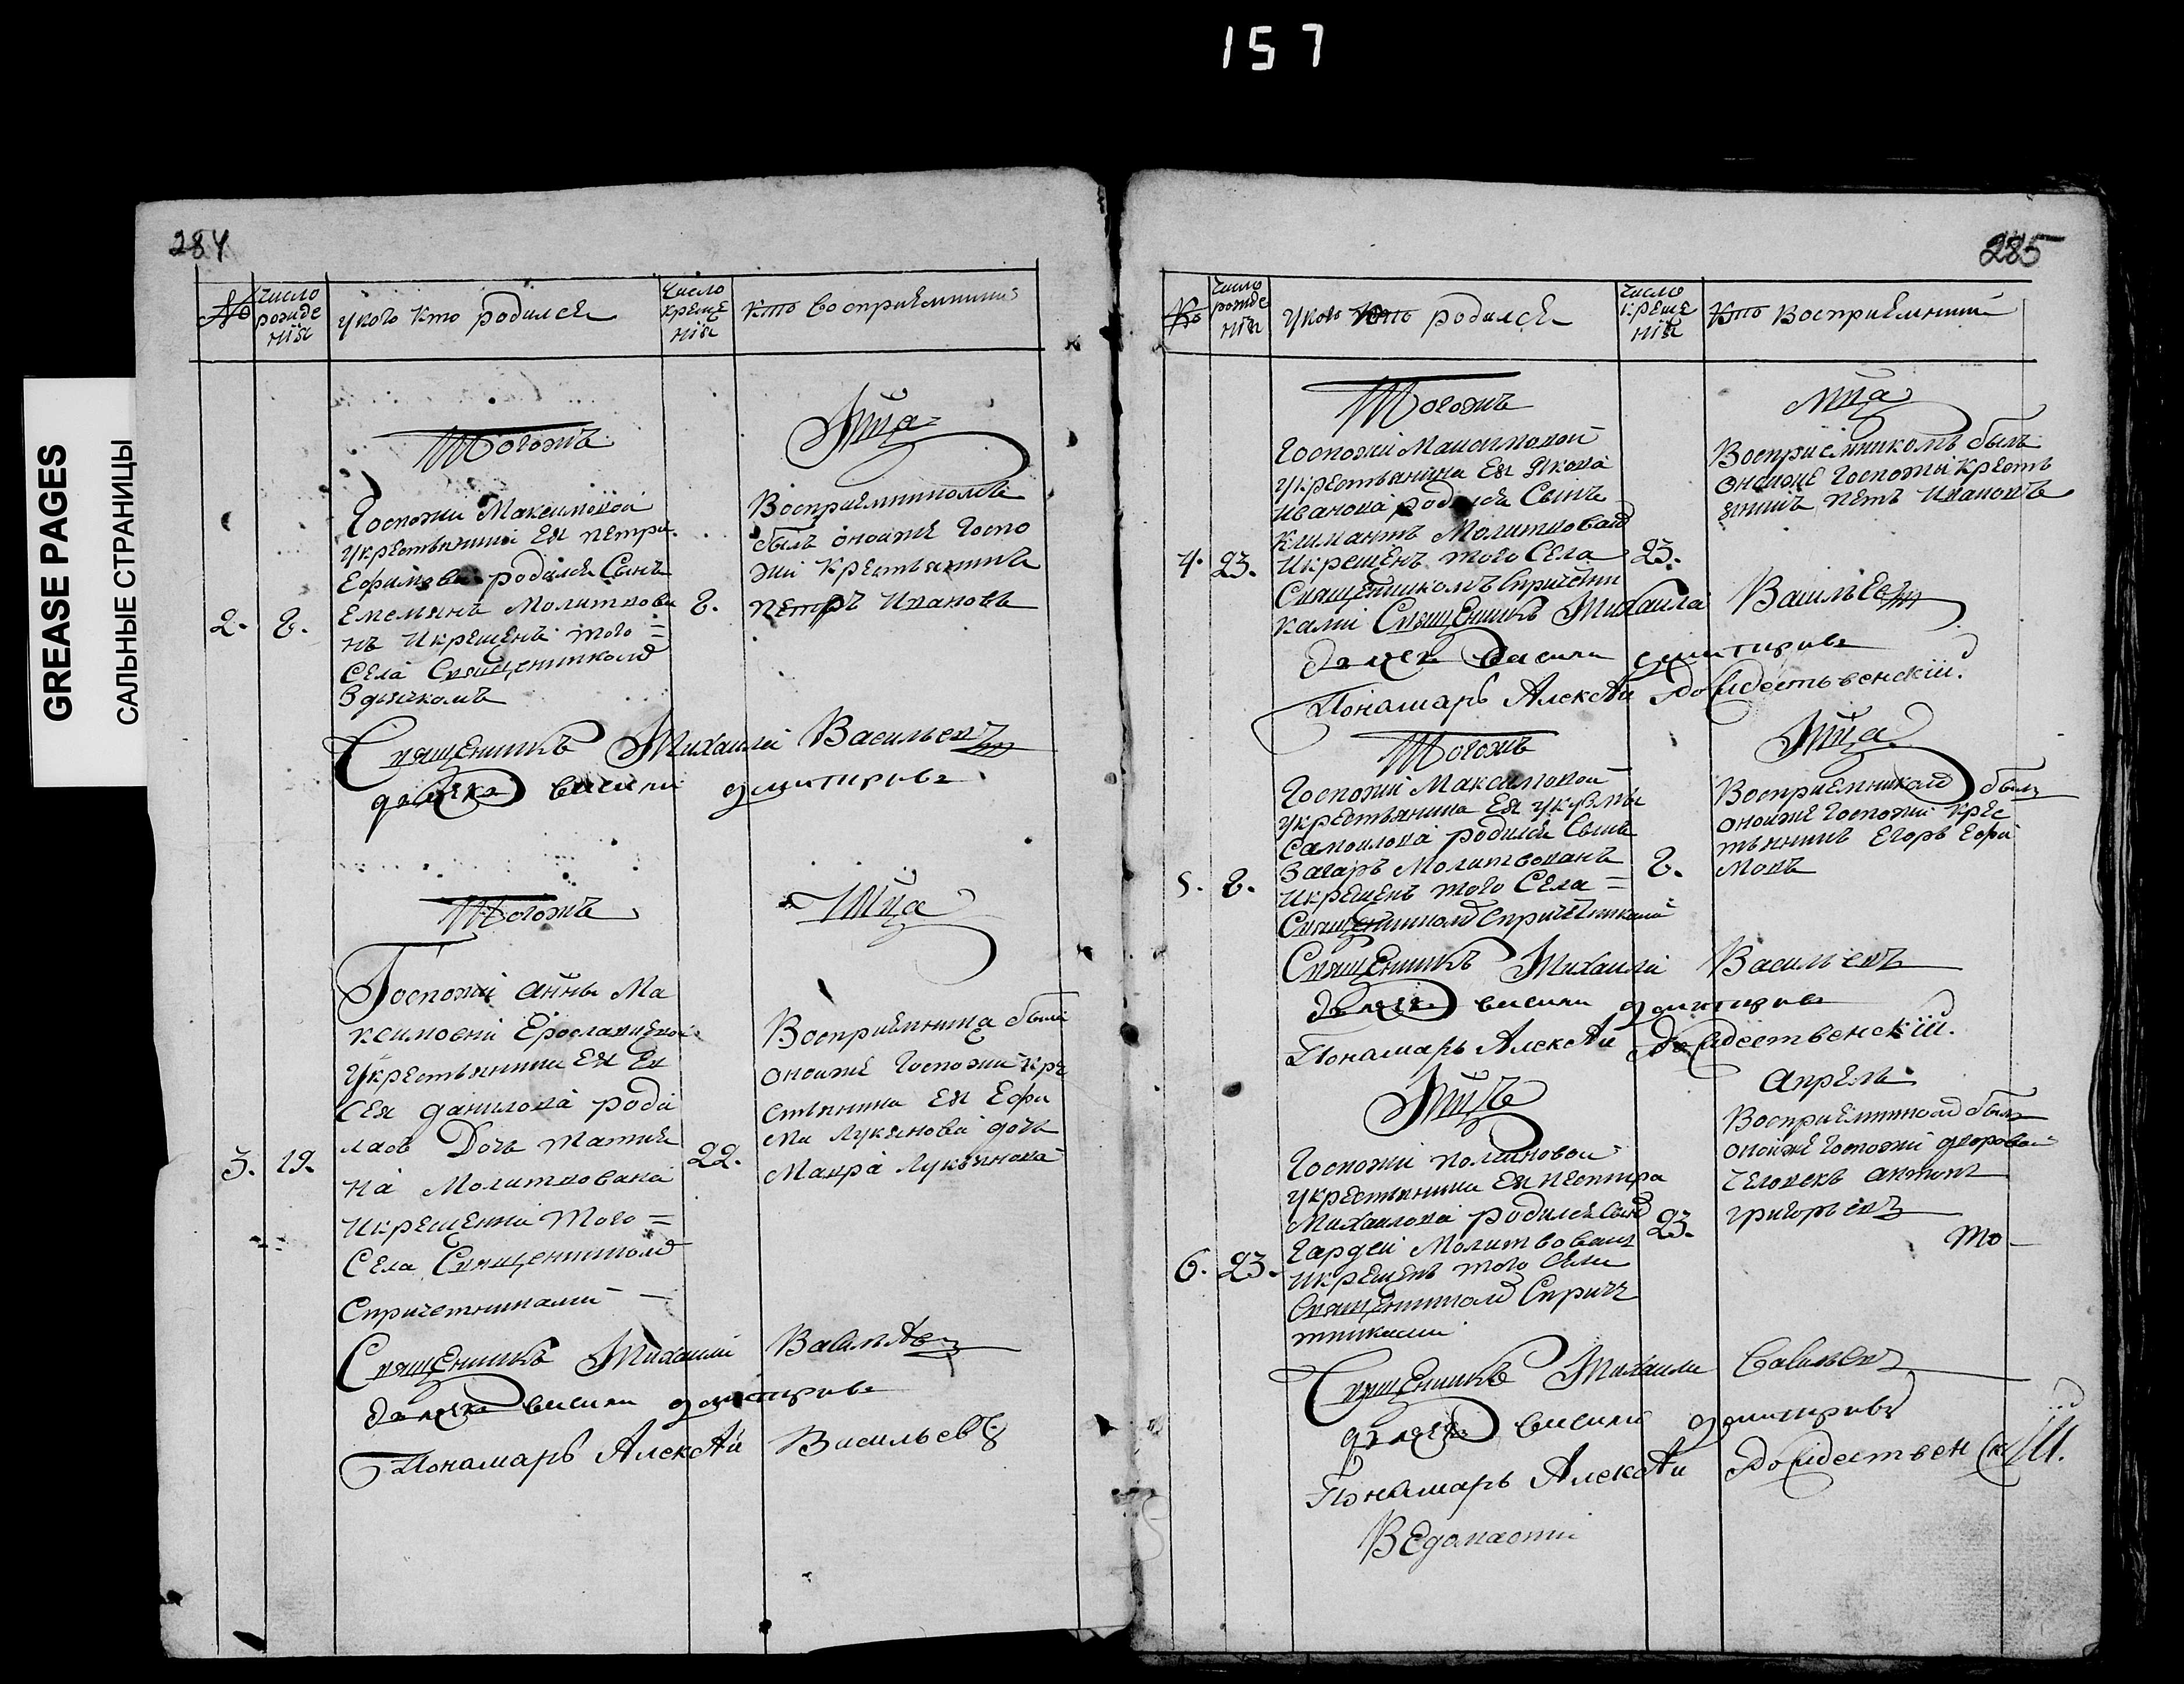 157
GREASE PAGES
САЛЬНЫЕ СТРАНИЦЫ
284
№
Число рожде нія
у кого кто родился
Число креще нія
кто восприемники
Тогожъ
Мца
Госпожи Максимовой
укрестьянина Ея петра
Ефимова родился Сынъ
Емельянъ Молитвова
нъ Икрещенъ того =
Села Священникомъ
Здьячкомъ
2.
8.
8.
Восприемникомъ
былъ оноиже Госпо
жи Крестьянинъ
петръ Ивановъ
Священникъ Михаилъ Васильевъ
дьячекъ василий дмитриевъ
Тогожъ
Мца
Госпожи анны Ма
ксимовни Ерославцевой
Укрестьянина Ея Ев
сея данилова роди
лась Дочь татия
на Молитвована
Икрещенна того =
Села Священникомъ
Спричетниками
3.
19.
22.
Восприемница была
оноиже Госпожи Кре
стьянина Ея Ефи
ма Лукянова дочь
Мавра Лукьянова
Священникъ Михаилъ Васильевъ
дьячекъ василий дмитриевъ
Понамарь Алексѣй Васильевъ
285
№
Число рожде нія
у кого кто родился
Число креще нія
кто Восприемники
Тогожъ
Мца
Госпожи Максимовой
укрестьянина Ея Якова
Иванова родился Сынъ
Климантъ Молитвованъ
Икрещенъ того Села
Священникомъ Спричетни
ками
4.
23.
23.
Восприемникомъ былъ
оноиже Госпожи Кресть
янинъ петъ Ивановъ
Священникъ Михаилъ Васильевъ
дьячекъ василий дмитриевъ
Понамарь Алексѣй Рождественскій.
Тогожъ
Мца
Госпожи Максимовой
укрестьянина Ея укузмы
Самоилова родился Сынъ
Захаръ Молитвованъ
Икрещенъ того Села =
Священникомъ Спричетниками
5.
8.
8.
Восприемникомъ былъ
оноиже Госпожи Крес
тьянинъ Егоръ Ефи
мовъ
Священникъ Михаилъ Васильевъ
дьячекъ василий дмитриевъ
Понамарь Алексѣй Рождественскій.
Мцъ
Апрель
Госпожи
укрестьянина Ея нестира
Михаилова родился Сынъ
Гардеи Молитвованъ
икрещенъ того Села
Священникомъ Сприче
тниками
6.
23.
23.
Восприемникомъ былъ
оноиже Госпожи дворовои
человекъ антонъ
григорьевъ
то
Священникъ Михаилъ Васильевъ
дьячекъ василий дмитриевъ
Понамарь Алексѣй Рождественскій.